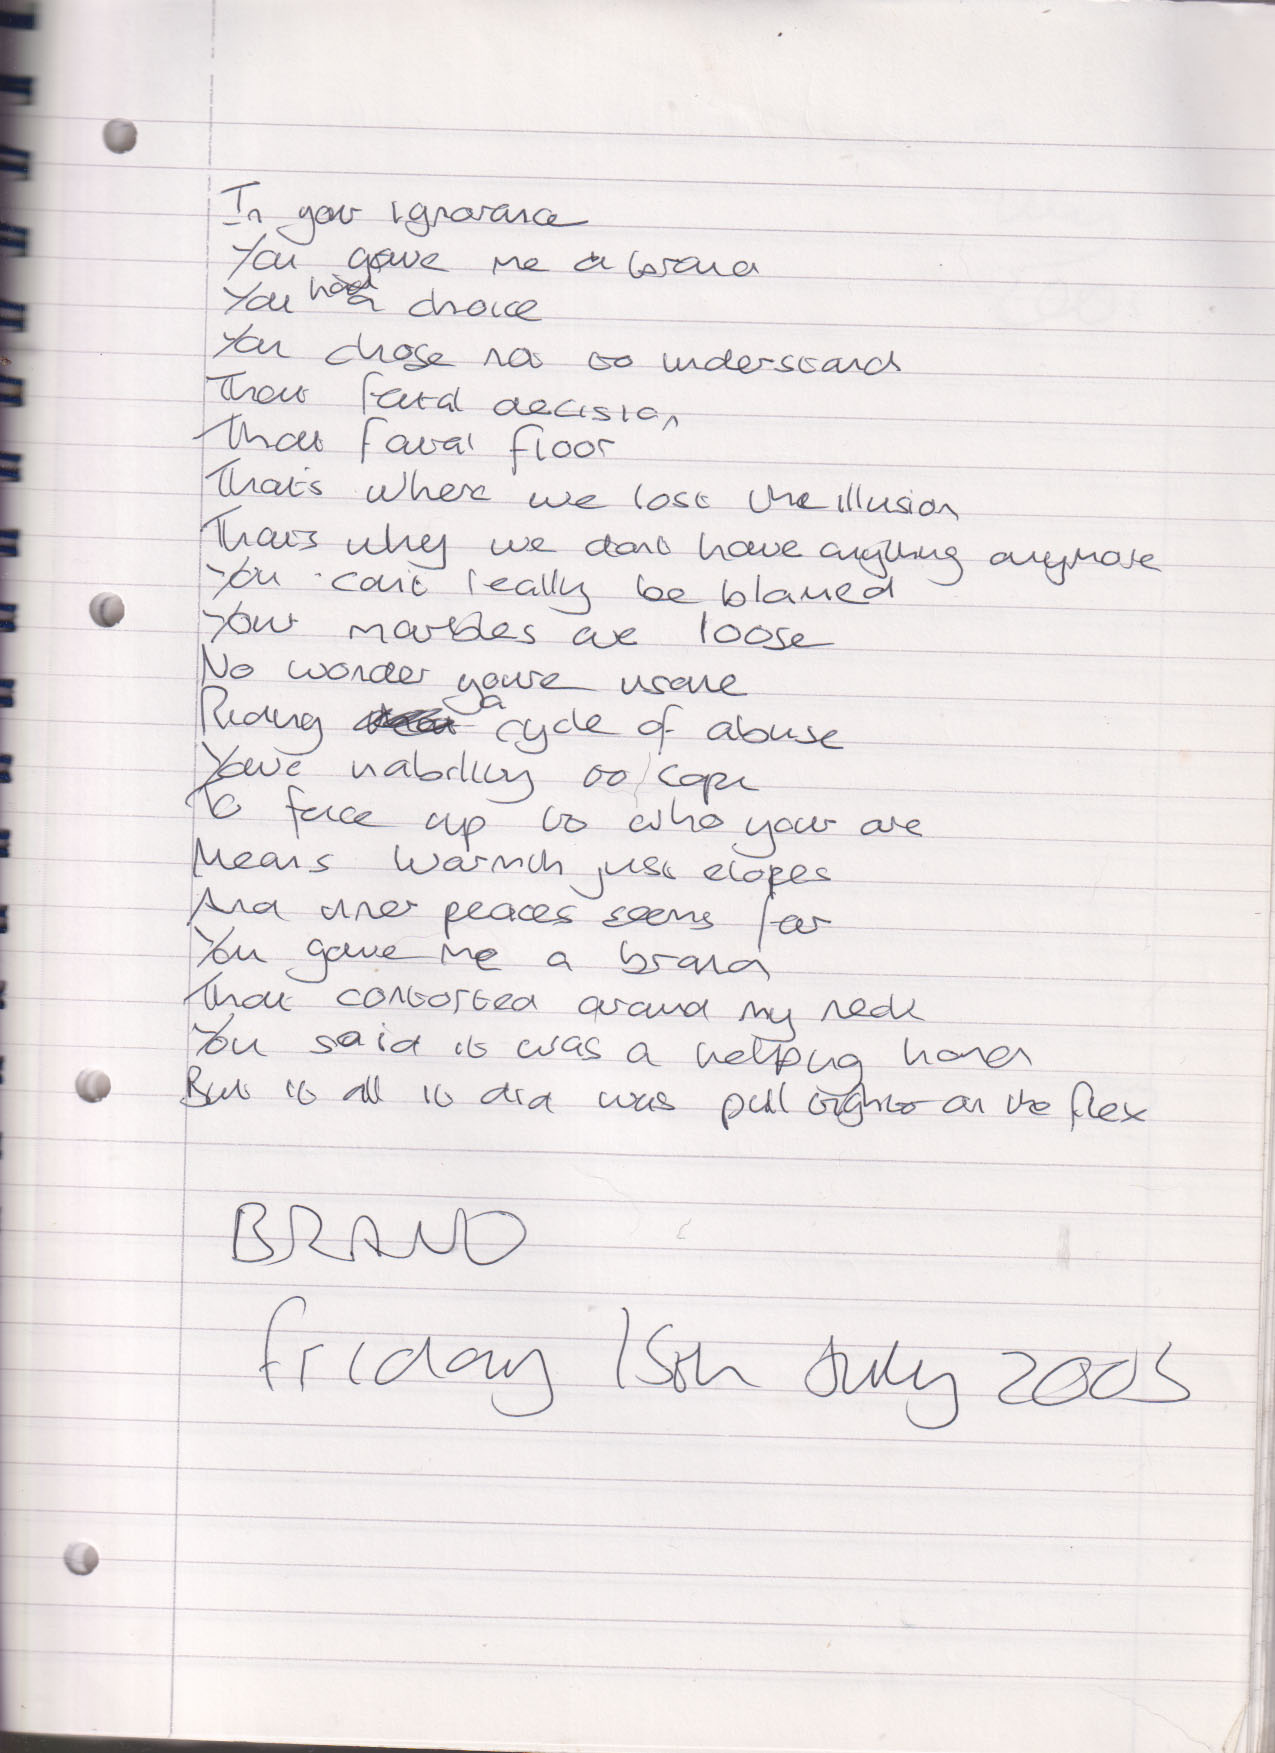 In your ignorance
You gave me a brand
You had a choice
You chose not to understand
That fatal decision
That fatal floor
That's where we lost the illusion
That's why we dont have anything anymore
You can't really be blamed
Your marbles are loose
No wonder youre insane
Riding a cycle of abuse
Your inability to cope
To face up to who your are
Means warmth just elopes
And inner peaces seems far
You gave me a brand
That contorted around my neck
You said it was a helping hand
But it all it did was pull tighter on the flex
BRAND
Friday 15th July 2005